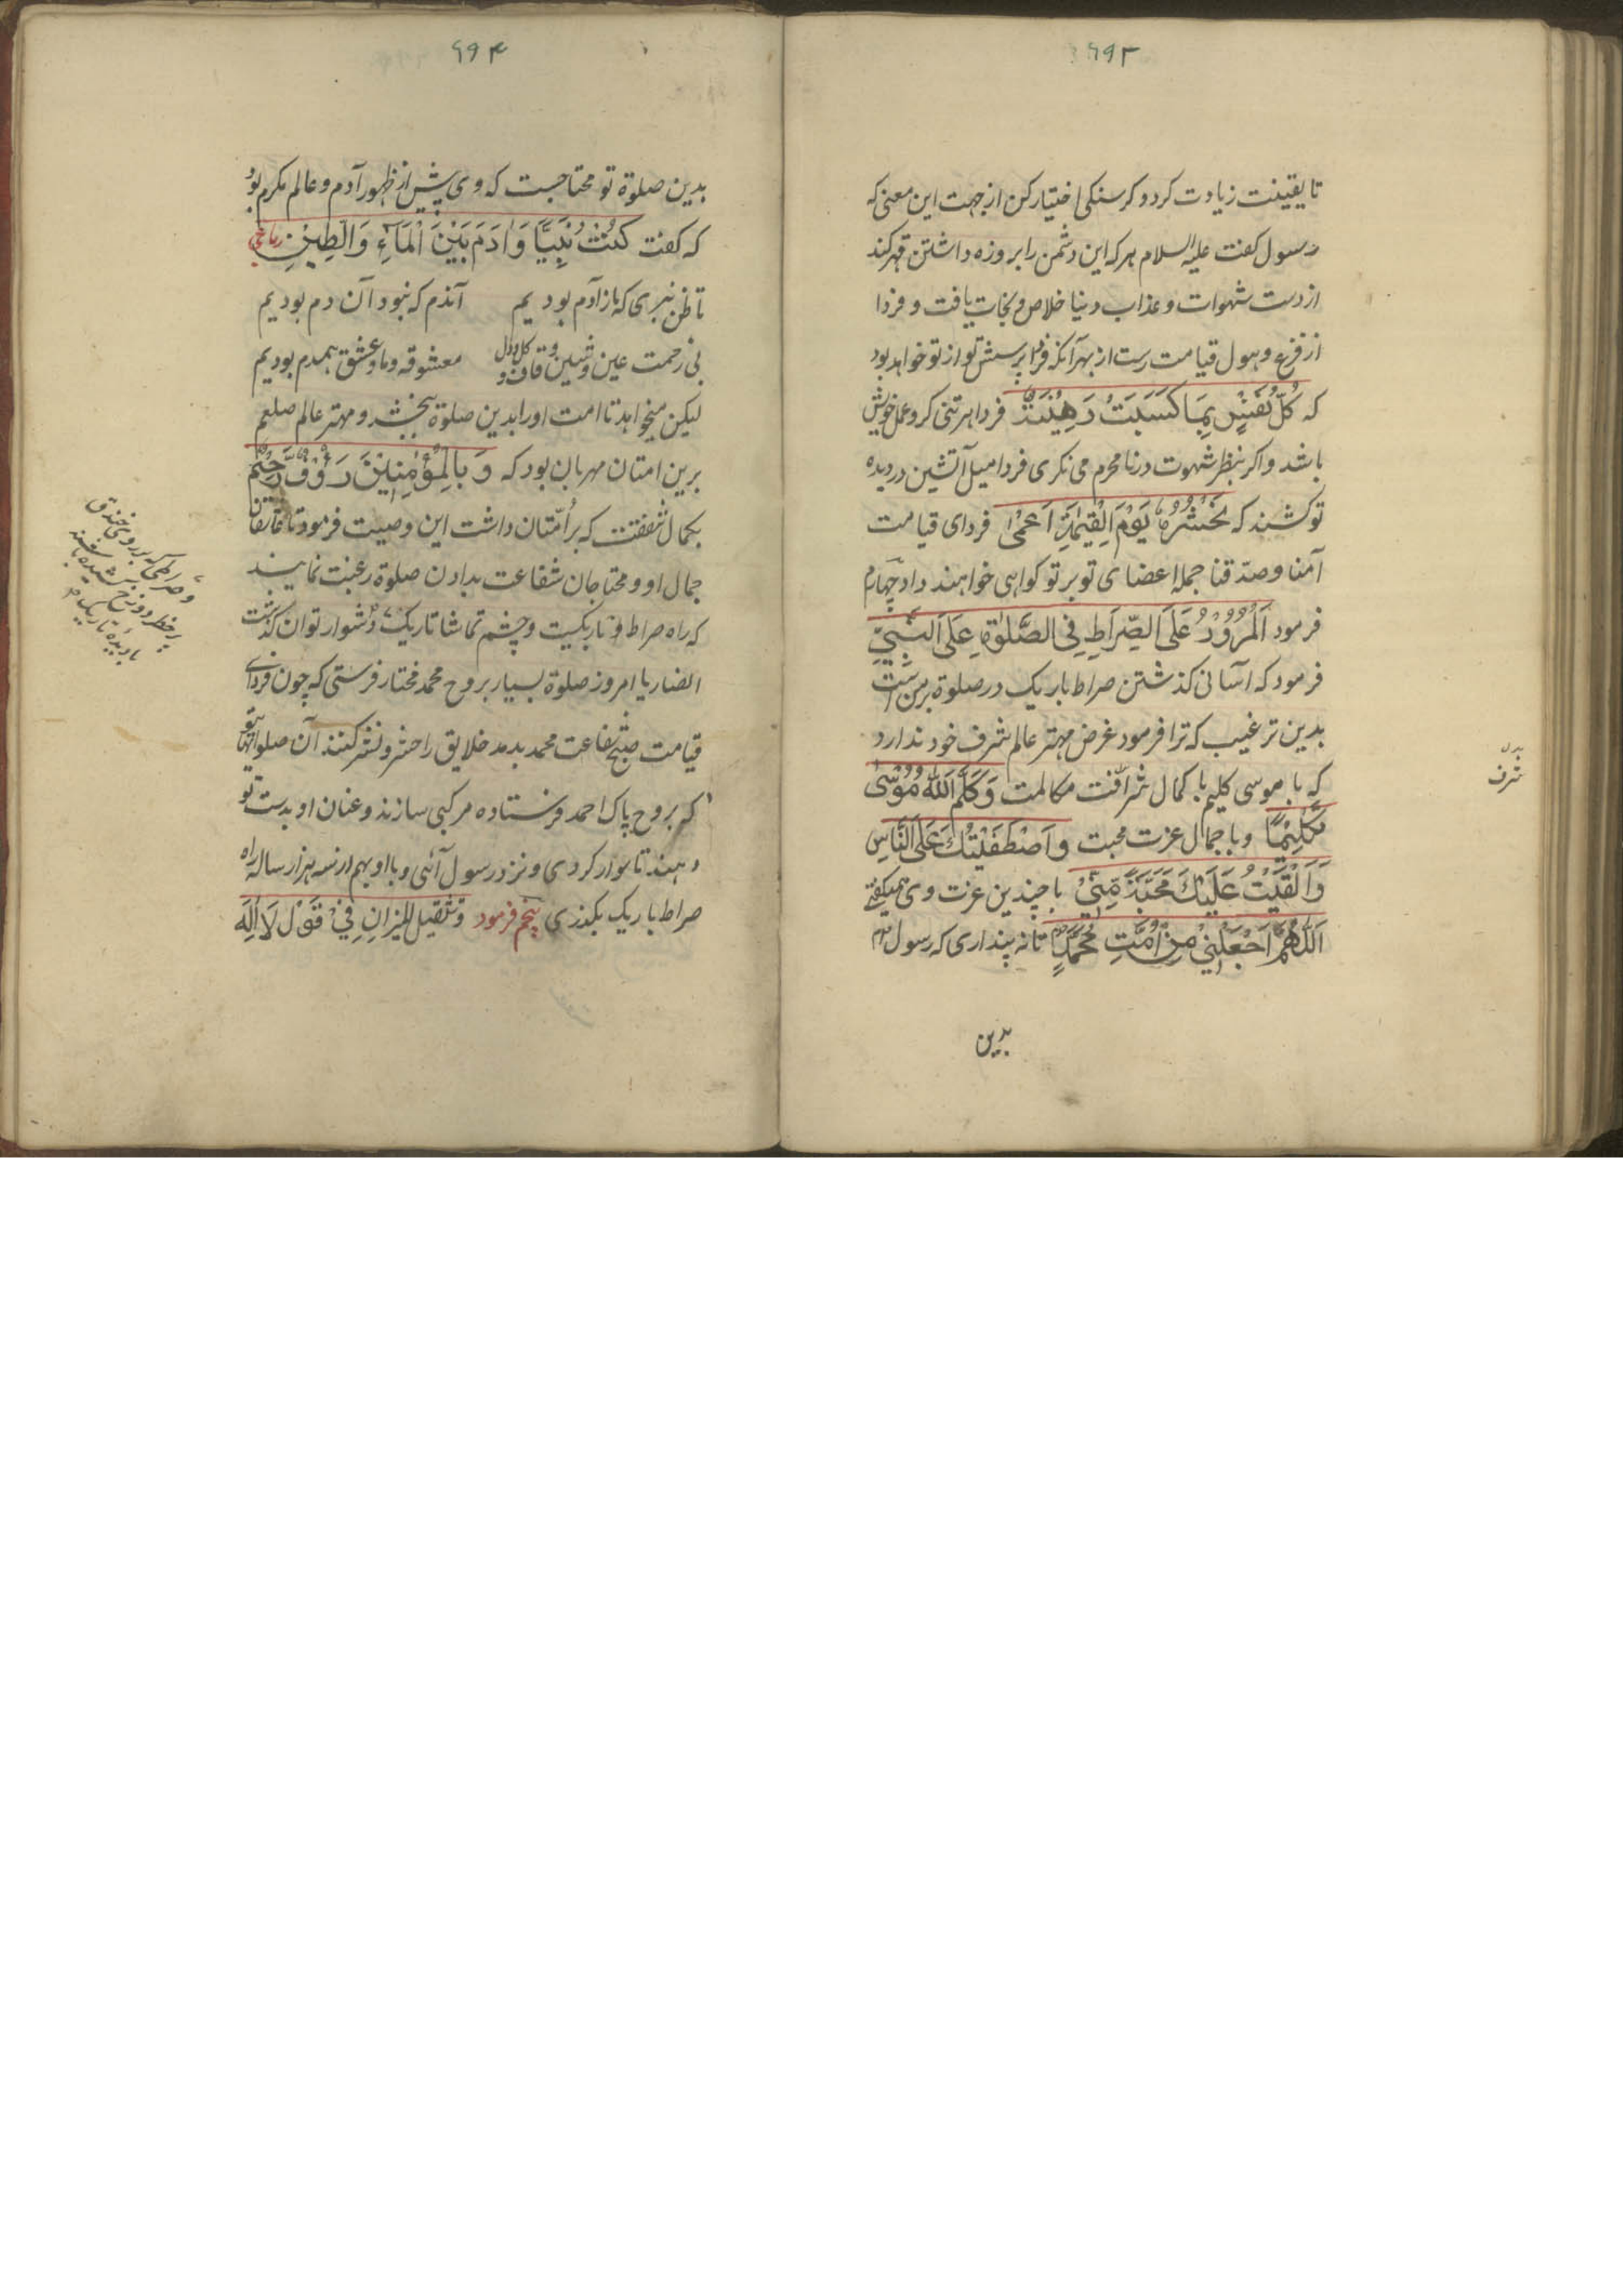 ۶۹۳
تا یقینت زیادت کردد کرسنکی اختیار کن از جهت این معنی که
رسول کفت علیه السلام هر که این دشمن را بروزه داشتن قهر کند
از دست شهوات و عذاب دنیا خلاص و نجات یافت و فردا
از فزع و هول قیامت رست از بهر آنکه فردا پرسش تو از تو خواهد بود
که کُلُّ نَفْسٍ بِمَا كَسَبَتْ رَهِيْنَةٌ فردا هر تنی کرو عمل خویش
باشد و اکر بنظر شهوت در نامحرم می نکری فردا میل آتشین در دیده
تو کشند که نَحْشُرُهُ يَوْمَ الْقِيٰمَةِ اَعْمٰى فردای قیامت
آمنا و صدقنا جمله اعضای تو بر تو کواهی خواهند داد چهارم
فرمود اَلْمُرُوْرُ عَلَى الصِّرَاطِ فِي الصَّلٰوةِ عَلَى النَّبِيِّ
فرمود که آسانی کذشتن صراط باریک در صلوة بر من است
بدین ترغیب که ترا فرمود غرض مهتر عالم شرف خود ندارد
که با موسی کلیم با کمال شرافت مکالمت وَكَلَّمَ اللّٰهُ مُوْسٰى
تَكْلِيْمًا و با جمال عزت محبت وَاصْطَفَيْتُكَ عَلَى النَّاسِ
وَاَلْقَيْتُ عَلَيْكَ مَحَبَّةً مِّنِّيْ با چندین عزت وی میکفتی
اَللّٰهُمَّ اجْعَلْنِيْ مِنْ اُمَّتِ مُحَمَّدٍ تا نه پنداری که رسول
بدین
شرف
۶۹۴
بدین صلوة تو محتاجست که وی پیش از ظهور آدم و عالم مکرم بود
که کفت كُنْتُ نَبِيًّا وَاٰدَمَ بَيْنَ الْمَآءِ وَالطِّيْنِ رباعی
تا ظن نبری که ما ز آدم بودیم آندم که نبود آن دم بودیم
بی زحمت عین و شین و قاف و کل و دل معشوقه و ما و عشق همدم بودیم
لیکن میخواهد تا امت او را بدین صلوة ببخشد و مهتر عالم صلعم
برین امتان مهربان بود که وَبِالْمُؤْمِنِيْنَ رَؤُفٌ رَّحِيْمٌ
بکمال شفقت که بر اُمّتان داشت این وصیت فرمود تا عاشقان
جمال او و محتاجان شفاعت بدادن صلوة رغبت نمایند
که راه صراط و تاریکیست و چشم تماشا تاریک دشوار توان کذشت
انصاریا امروز صلوة بسیار بروح محمد مختار فرستی که چون فردای
قیامت شفاعت محمد بدمد خلایق را حشر و نشر کنند آن صلواتهای تو
که بروح پاک احمد فرستاده مرکبی سازند و عنان او بدست تو
دهند تا سوار کردی و نزد رسول آئی و با او بهم از سه هزار ساله راه
صراط باریک بکذری پنجم فرمود وَتَثْقِيْلُ الْمِيْزَانِ فِيْ قَوْلِ لَا اِلٰهَ
و صراطی که بر روی خندق
پر خطر دوزخ کشیده باشند
با دیدۀ تاریک